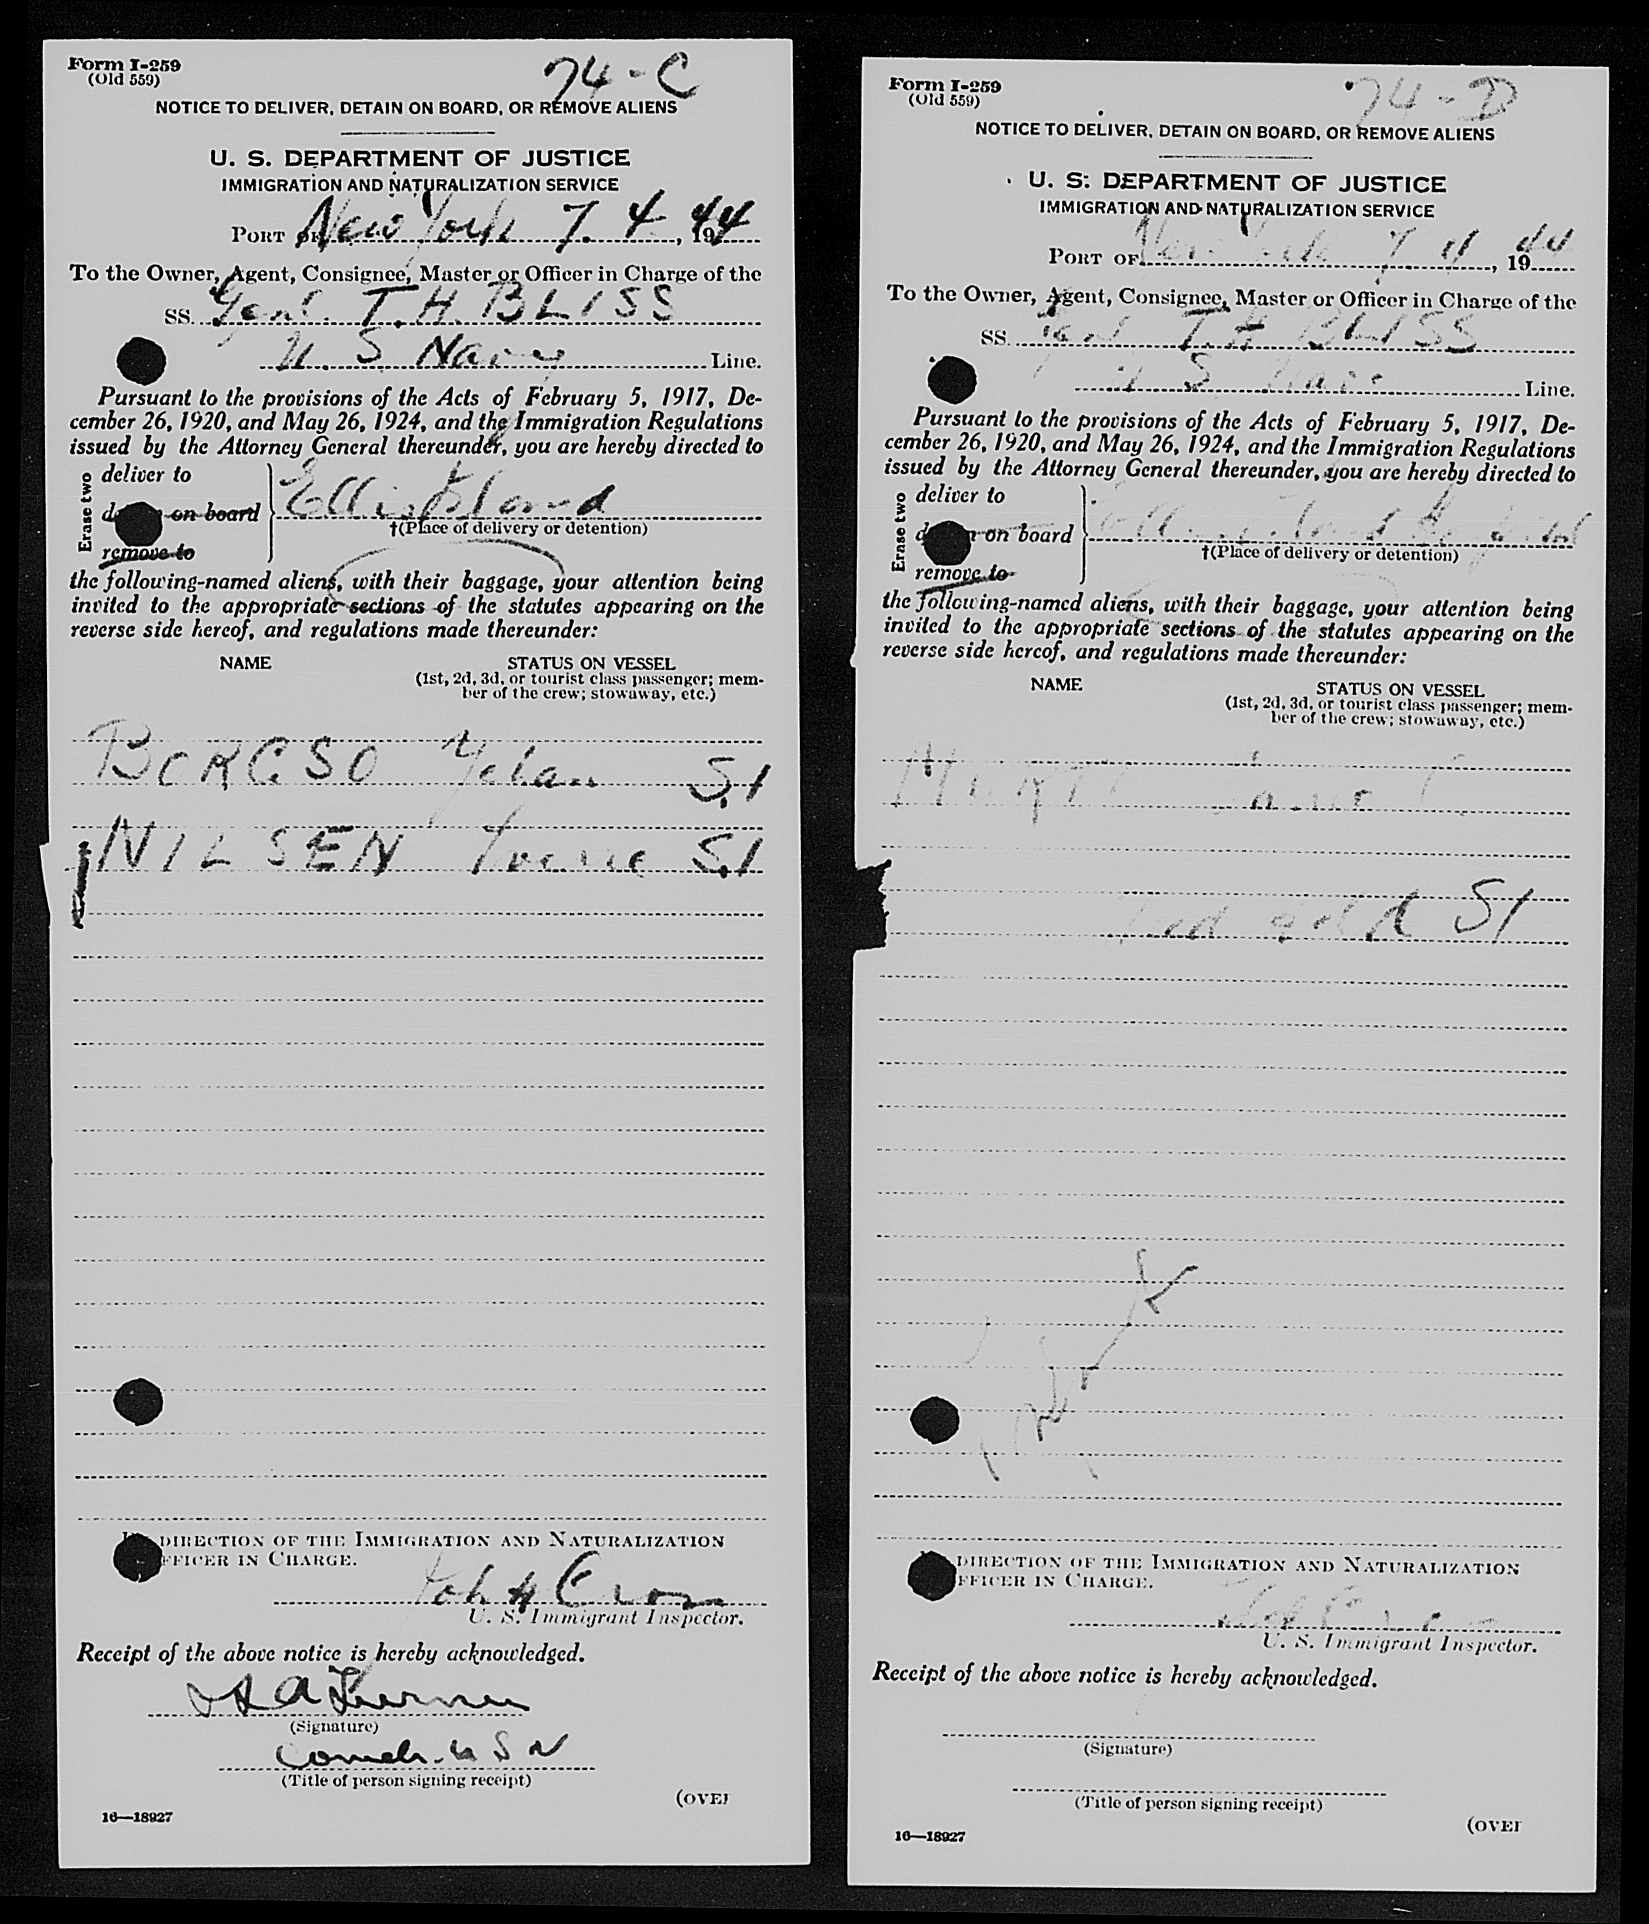 Form I-259
(Old 559)
74-C
NOTICE TO DELIVER, DETAIN ON BOARD, OR REMOVE ALIENS
U. S. DEPARTMENT OF JUSTICE
IMMIGRATION AND NATURALIZATION SERVICE
PORT OF New York 7. 4, 1944
To the Owner, Agent, Consignee, Master or Officer in Charge of the
SS. Genl. T. H. BLISS
U. S. Navy Line.
Pursuant to the provisions of the Acts of February 5, 1917, De-
cember 26, 1920, and May 26, 1924, and the Immigration Regulations
issued by the Attorney General thereunder, you are hereby directed to
Erase two
deliver to
on board
remove to
Ellis Island
†(Place of delivery or detention)
the following-named aliens, with their baggage, your attention being
invited to the appropriate sections of the statutes appearing on the
reverse side hereof, and regulations made thereunder:
NAME STATUS ON VESSEL
(1st, 2d, 3d, or tourist class passenger; mem-
ber of the crew; stowaway, etc.)
S.I
NILSEN S.I
DIRECTION OF THE IMMIGRATION AND NATURALIZATION
FFICER IN CHARGE.
U. S. Immigrant Inspector.
Receipt of the above notice is hereby acknowledged.
(Signature)
Comdr. U S N
(Title of person signing receipt)
(OVER
16—18927
Form I-259
(Old 559)
74-D
NOTICE TO DELIVER, DETAIN ON BOARD, OR REMOVE ALIENS
U. S. DEPARTMENT OF JUSTICE
IMMIGRATION AND NATURALIZATION SERVICE
PORT OF New York 7 , 1944
To the Owner, Agent, Consignee, Master or Officer in Charge of the
SS. Genl T. H BLISS
U S Navy Line.
Pursuant to the provisions of the Acts of February 5, 1917, De-
cember 26, 1920, and May 26, 1924, and the Immigration Regulations
issued by the Attorney General thereunder, you are hereby directed to
Erase two
deliver to
on board
remove to
Ellis Island
†(Place of delivery or detention)
the following-named aliens, with their baggage, your attention being
invited to the appropriate sections of the statutes appearing on the
reverse side hereof, and regulations made thereunder:
NAME STATUS ON VESSEL
(1st, 2d, 3d, or tourist class passenger; mem-
ber of the crew; stowaway, etc.)
SI
DIRECTION OF THE IMMIGRATION AND NATURALIZATION
FFICER IN CHARGE.
U. S. Immigrant Inspector.
Receipt of the above notice is hereby acknowledged.
(Signature)
(Title of person signing receipt)
(OVER
16—18927